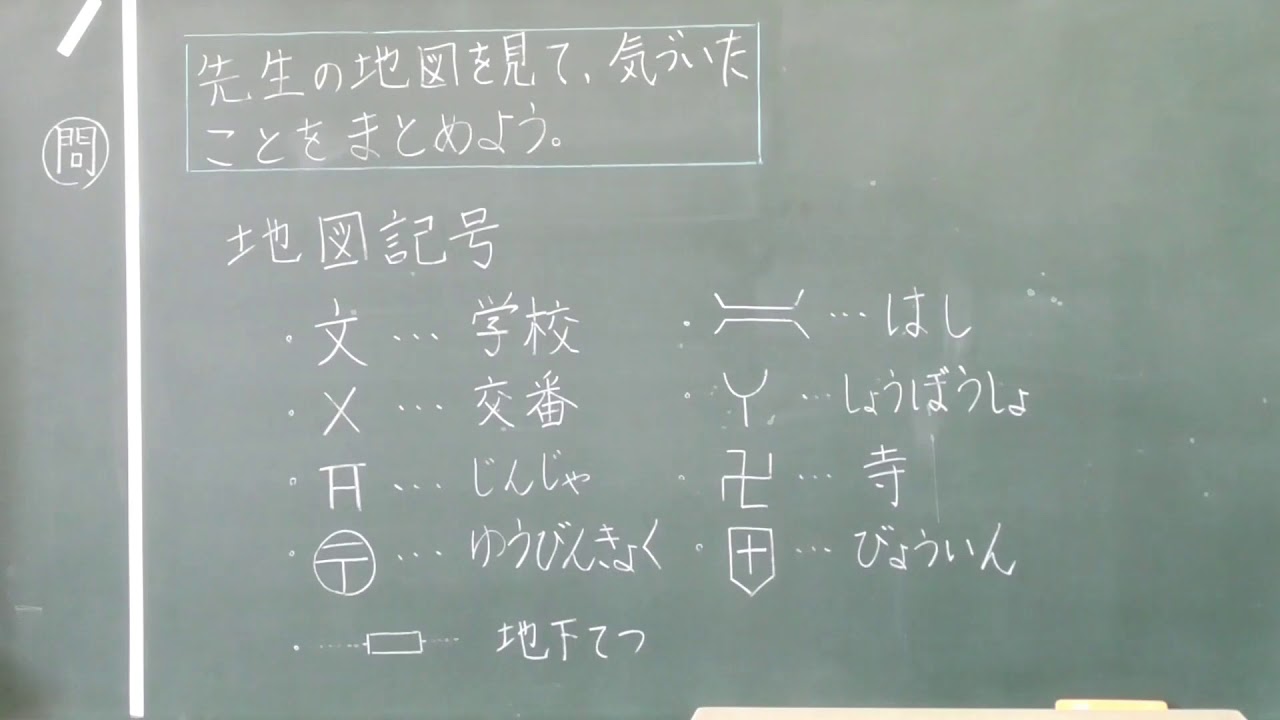 問
先生の地図を見て、気づいた
ことをまとめよう。
地図記号
・文…学校
・X…交番
・⛩…じんじゃ
・〶…ゆうびんきょく
・地下てつ
・…はし
・Y…しょうぼうしょ
・卍…寺
・…びょういん